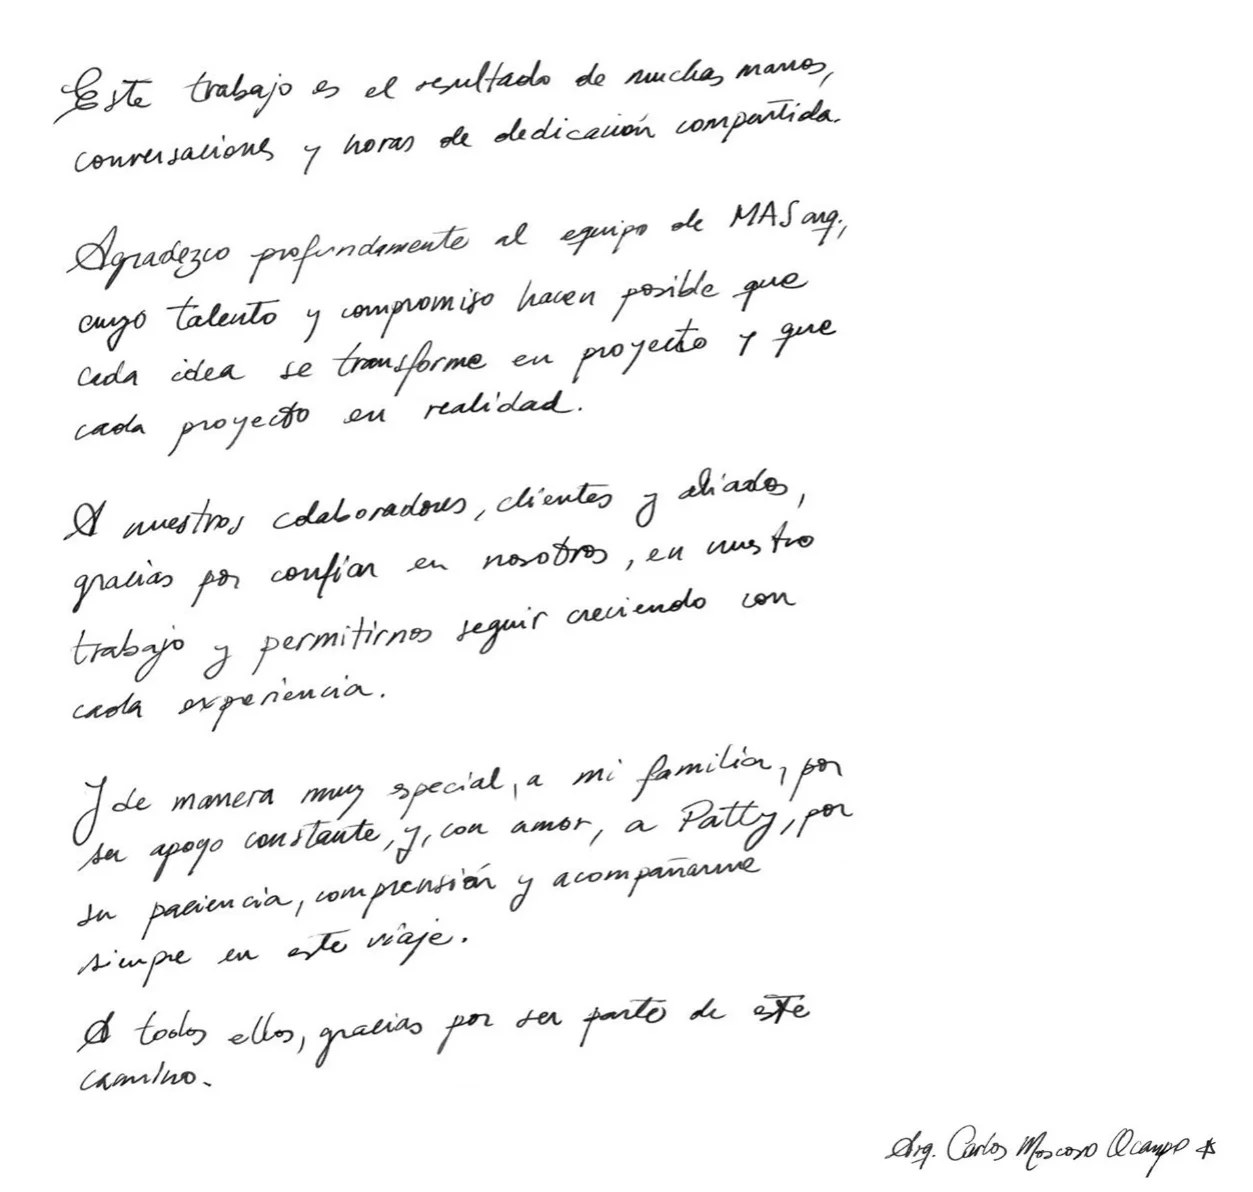 Este trabajo es el resultado de muchas manos,
conversaciones y horas de dedicación compartida.
Agradezco profundamente al equipo de MASarq.,
cuyo talento y compromiso hacen posible que
cada idea se transforme en proyecto y que
cada proyecto en realidad.
A nuestros colaboradores, clientes y aliados,
gracias por confiar en nosotros, en nuestro
trabajo y permitirnos seguir creciendo con
cada experiencia.
Y de manera muy especial, a mi familia, por
su apoyo constante, y, con amor, a Patty, por
su paciencia, comprensión y acompañarme
siempre en este viaje.
A todos ellos, gracias por ser parte de este
camino.
Arq. Carlos Moscoso Ocampo